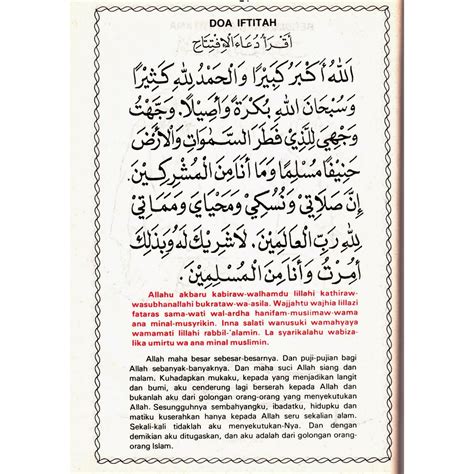 DOA IFTITAH
اَقْرَأُ دُعَاءَ الْاِفْتِتَاحِ
اَللّٰهُ اَكْبَرُ كَبِيْرًا وَالْحَمْدُ لِلّٰهِ كَثِيْرًا
وَسُبْحَانَ اللّٰهِ بُكْرَةً وَأَصِيْلًا. وَجَّهْتُ
وَجْهِيَ لِلَّذِيْ فَطَرَ السَّمٰوَاتِ وَالْأَرْضَ
حَنِيْفًا مُسْلِمًا وَمَا أَنَا مِنَ الْمُشْرِكِيْنَ.
إِنَّ صَلَاتِيْ وَنُسُكِيْ وَمَحْيَايَ وَمَمَاتِيْ
لِلّٰهِ رَبِّ الْعَالَمِيْنَ. لَا شَرِيْكَ لَهُ وَبِذٰلِكَ
أُمِرْتُ وَأَنَا مِنَ الْمُسْلِمِيْنَ.
Allahu akbaru kabiraw-walhamdu lillahi kathiraw-
wasubhanallahi bukrataw-wa-asila. Wajjahtu wajhia lillazi
fataras sama-wati wal-ardha hanifam-muslimaw-wama
ana minal-musyrikin. Inna salati wanusuki wamahyaya
wamamati lillahi rabbil-'alamin. La syarikalahu wabiza-
lika umirtu wa ana minal muslimin.
Allah maha besar sebesar-besarnya. Dan puji-pujian bagi
Allah sebanyak-banyaknya. Dan maha suci Allah siang dan
malam. Kuhadapkan mukaku, kepada yang menjadikan langit
dan bumi, aku cenderung lagi berserah kepada Allah dan
bukanlah aku dari golongan orang-orang yang menyekutukan
Allah. Sesungguhnya sembahyangku, ibadatku, hidupku dan
matiku kuserahkan hanya kepada Allah seru sekalian alam.
Sekali-kali tidaklah aku menyekutukan-Nya. Dan dengan
demikian aku ditugaskan, dan aku adalah dari golongan orang-
orang Islam.